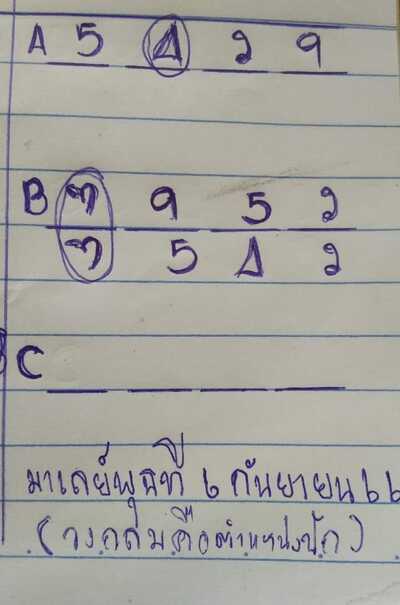 A 5 4 2 9
B 7 9 5 2
7 5 4 2
C
มาเลย์พุธที่ 6 กันยายน 66
(วงกลมคือตำแหน่งปัก)